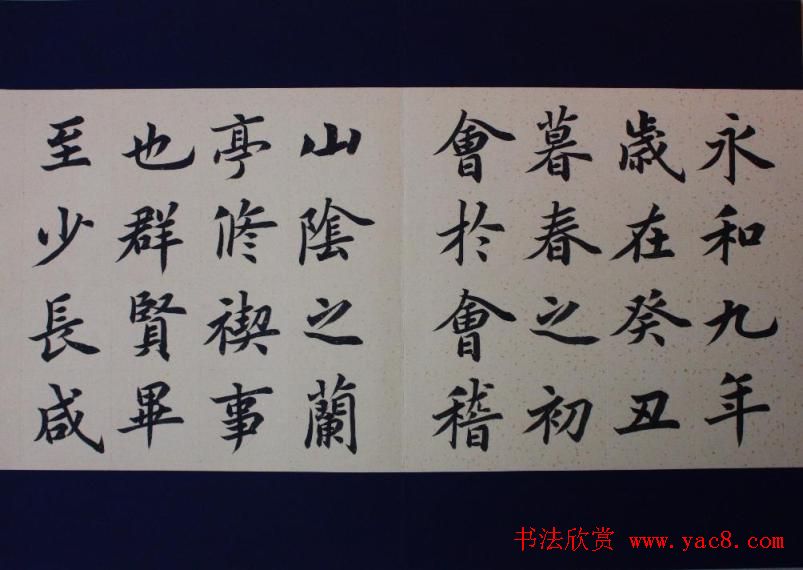 永和九年
歲在癸丑
暮春之初
會於會稽
山陰之蘭
亭修禊事
也群賢畢
至少長咸
书法欣赏 www.yac8.com